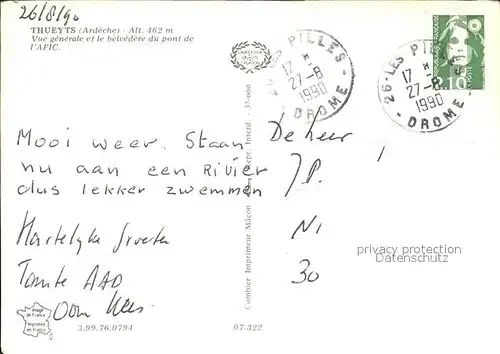 26/8/90
THUEYTS (Ardèche) - Alt. 462 m
Vue générale et le belvédère du pont de
l'AFIC.
26-LES PILLES
17 H
27-8
1990
DROME
26-LES PILLES
17 H
27-8
1990
DROME
2,10
Mooi weer. Staan
nu aan een Rivier
dus lekker zwemmen
Hartelijke Groeten
Tante AAD
Oom Kees
De heer
J.P.
NI
30
Combier Imprimeur Mâcon
Interd. - 37000
Image
de France
Imprimée
en France
3.99.76.0794
07.322
privacy protection
Datenschutz